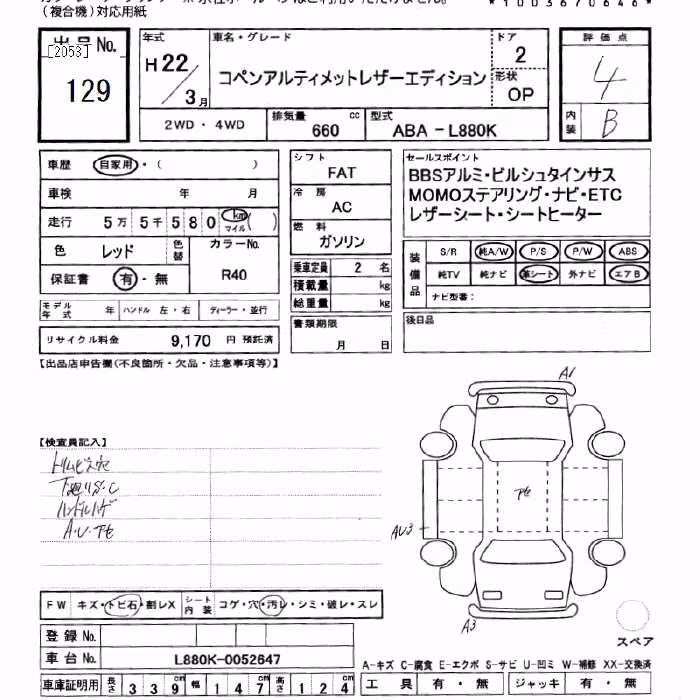 (複合機)対応用紙
*1003670646*
出品No.
[2053]
129
年式
H22/3月
車名・グレード
コペンアルティメットレザーエディション
ドア
2
形状
OP
評価点
4
内装
B
2WD・4WD
排気量
660
cc
型式
ABA-L880K
車歴
自家用・( )
車検 年 月
走行 5万 5千 5 8 0 km マイル ( )
色 レッド
色替
カラーNo.
R40
保証書 有・無
モデル年式 年
ハンドル 左・右
ディーラー・並行
リサイクル料金 9,170 円 預託済
シフト
FAT
冷房
AC
燃料
ガソリン
乗車定員 2 名
積載量 kg
総重量 kg
書類期限
月 日
セールスポイント
BBSアルミ・ビルシュタインサス
MOMOステアリング・ナビ・ETC
レザーシート・シートヒーター
装備品
S/R 純A/W P/S P/W ABS
純TV 純ナビ 革シート 外ナビ エアB
ナビ型番:
後日品
【出品店申告欄(不良箇所・欠品・注意事項等)】
【検査員記入】
トリムビス穴
下廻りS・C
ハンドルハゲ
A・U・下セ
A1
下セ
AU3
A3
FW キズ・トビ石・割レX
シート内装 コゲ・穴・汚レ・シミ・破レ・スレ
登録No.
車台No. L880K-0052647
車庫証明用 長さ 3 3 9cm 幅 1 4 7cm 高さ 1 2 4cm
スペア
A-キズ C-腐食 E-エクボ S-サビ U-凹ミ W-補修 XX-交換済
工具 有・無 ジャッキ 有・無